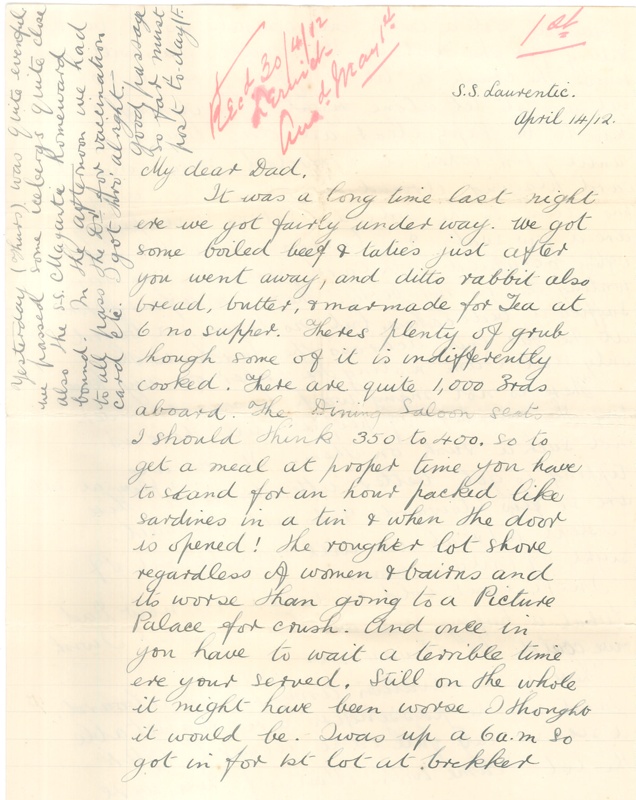 1st
Rec'd 30/4/12
Lerwick
Ans'd May 1st
S.S. Laurentic.
April 14/12.
My dear Dad,
It was a long time last night
ere we got fairly under way. We got
some boiled beef & taties just after
you went away, and ditto rabbit also
bread, butter, & marmade for Tea at
6 no supper. Theres plenty of grub
though some of it is indifferently
cooked. There are quite 1,000 3rds
aboard. The Dining Saloon seats
I should think 350 to 400. so to
get a meal at proper time you have
to stand for an hour packed like
sardines in a tin & when the door
is opened! the rougher lot shove
regardless of women & bairns and
its worse than going to a Picture
Palace for crush. And once in
you have to wait a terrible time
ere your served. Still on the whole
it might have been worse I thought
it would be. I was up a 6 a.m so
got in for 1st lot at brekker
Yesterday (Thurs) was quite eventful
we passed some icebergs quite close
also the s.s. Magarta homeward
bound. In the afternoon we had
to all pass the Dr for vaccination
card etc. I got thro' alright.
Good passage
so far must
post to-day